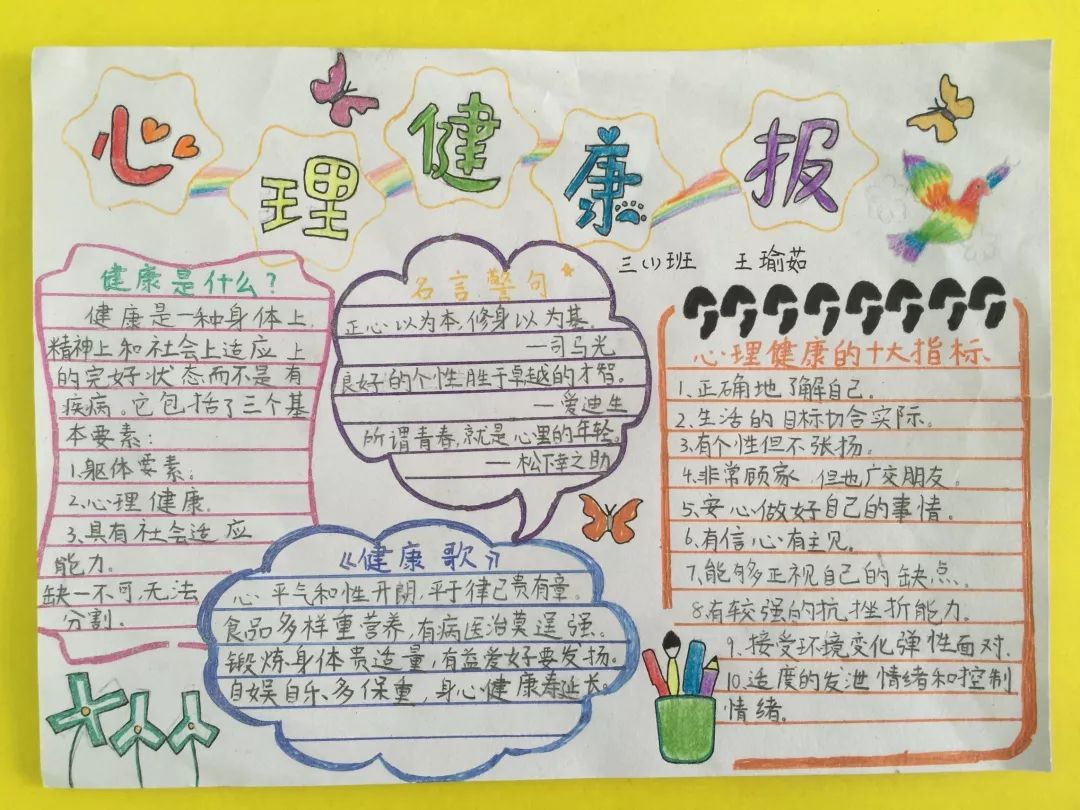 心理健康报
三(1)班 王瑜茹
健康是什么？
健康是一种身体上
精神上和社会上适应上
的完好状态而不是有
疾病。它包括了三个基
本要素：
1.躯体要素。
2.心理健康。
3.具有社会适应
能力。
缺一不可,无法
分割.
名言警句
正心以为本,修身以为基.
—司马光
良好的个性胜于卓越的才智。
—爱迪生
所谓青春,就是心里的年轻。
—松下幸之助
《健康歌》
心平气和性开朗,平于律己贵有章。
食品多样重营养,有病医治莫逞强。
锻炼身体贵适量,有益爱好要发扬。
自娱自乐、多保重,身心健康寿延长。
心理健康的十大指标
1.正确地了解自己.
2.生活的目标切合实际。
3.有个性但不张扬.
4.非常顾家 但也广交朋友。
5.安心做好自己的事情.
6.有信心有主见.
7.能够正视自己的缺点.
8.有较强的抗挫折能力.
9.接受环境变化弹性面对.
10.适度的发泄情绪和控制
情绪。